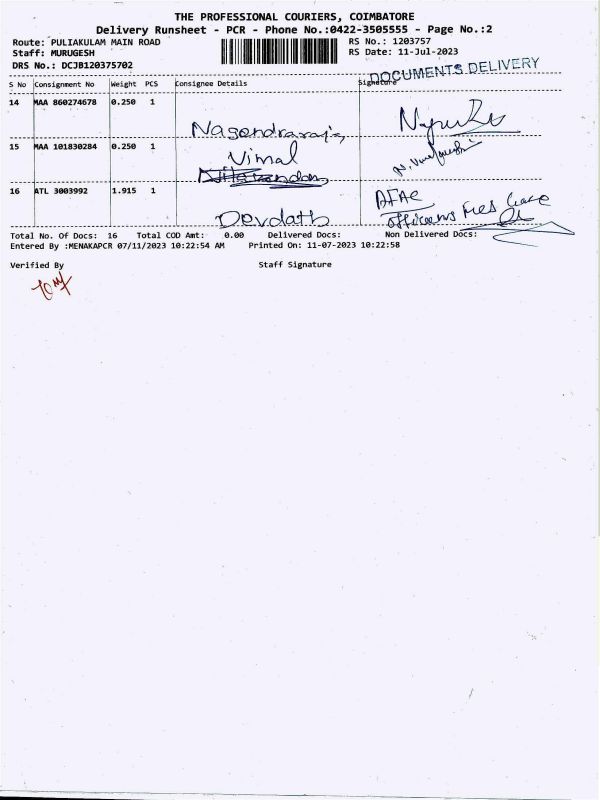 THE PROFESSIONAL COURIERS, COIMBATORE
Delivery Runsheet - PCR - Phone No.:0422-3505555 - Page No.:2
Route: PULIAKULAM MAIN ROAD RS No.: 1203757
Staff: MURUGESH RS Date: 11-Jul-2023
DRS No.: DCJB120375702 DOCUMENTS DELIVERY
S No Consignment No Weight PCS Consignee Details Signature
14 MAA 860274678 0.250 1
Nagendraraj
15 MAA 101830284 0.250 1
Vimal
16 ATL 3003992 1.915 1
AFAC
Devdath Officers Mes
Total No. Of Docs: 16 Total COD Amt: 0.00 Delivered Docs: Non Delivered Docs:
Entered By :MENAKAPCR 07/11/2023 10:22:54 AM Printed On: 11-07-2023 10:22:58
Verified By Staff Signature